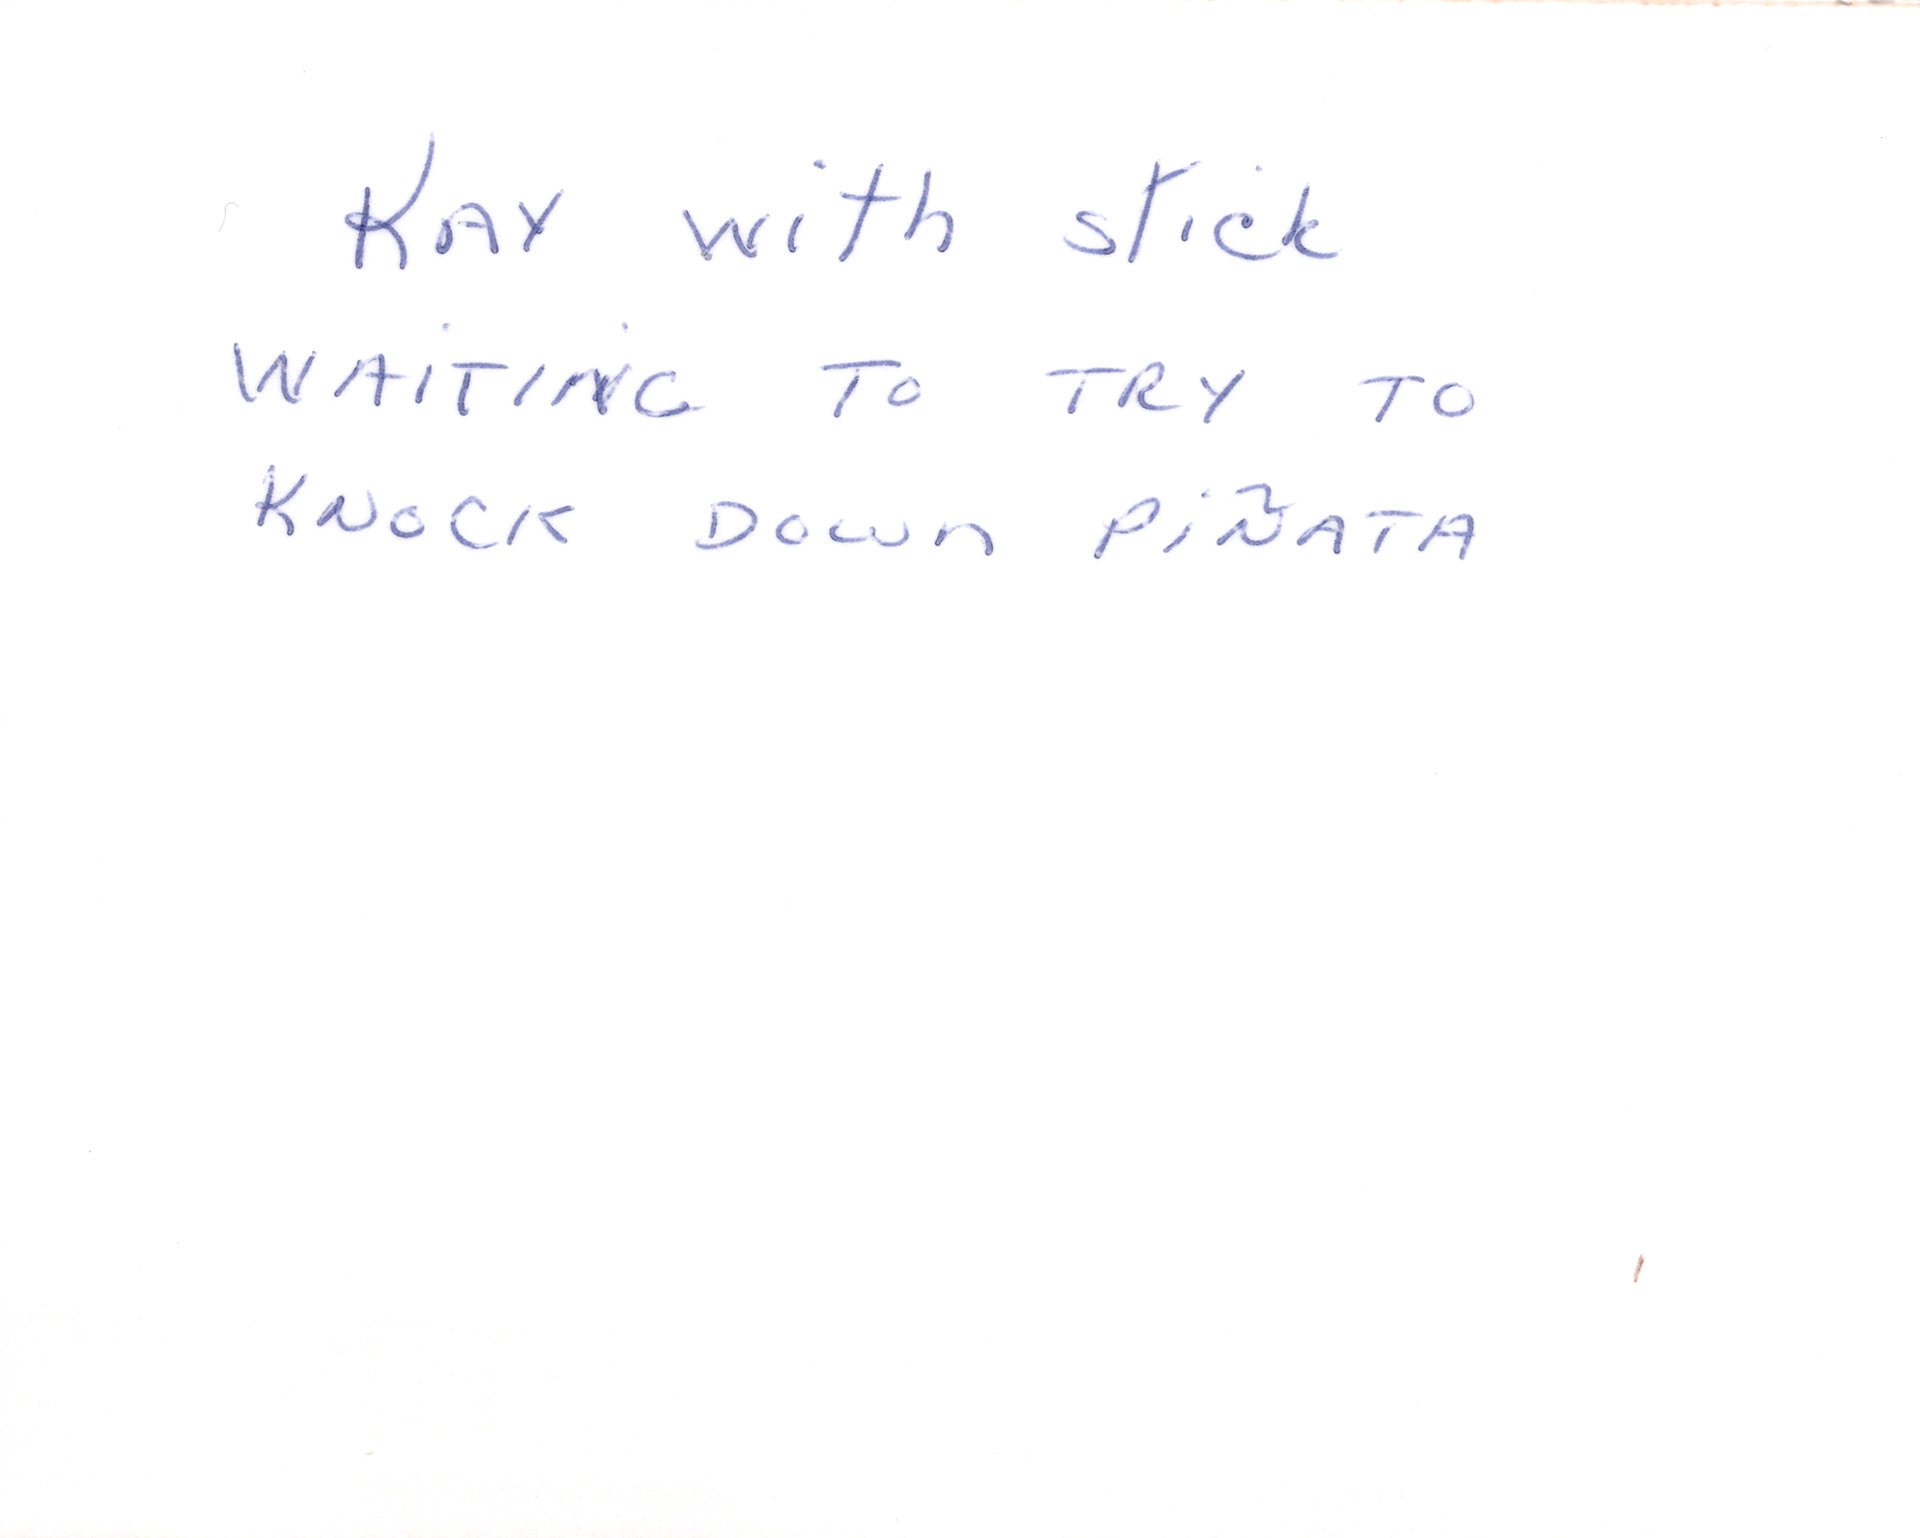 KAY with stick
WAITING TO TRY TO
KNOCK DOWN PIÑATA